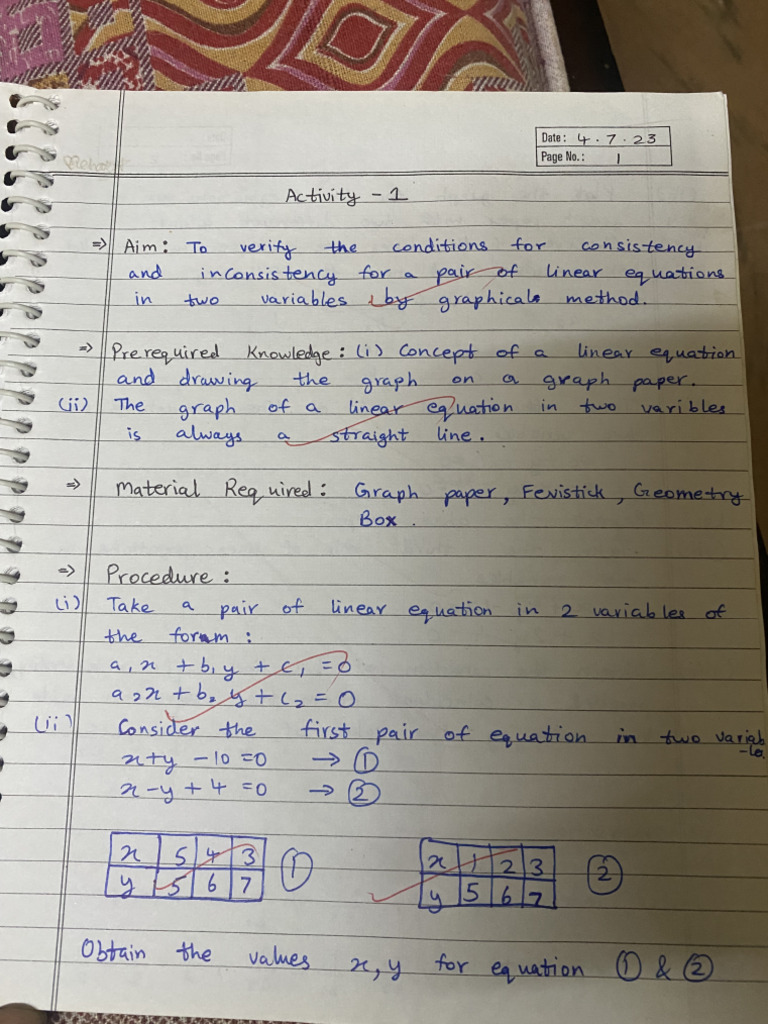 Date: 4.7.23
Page No.: 1
Activity - 1
⇒ Aim: To verify the conditions for consistency
and inconsistency for a pair of linear equations
in two variables by graphical method.
⇒ Prerequired Knowledge: (i) Concept of a linear equation
and drawing the graph on a graph paper.
(ii) The graph of a linear equation in two varibles
is always a straight line.
⇒ Material Required: Graph paper, Fevistick, Geometry
Box.
⇒ Procedure:
(i) Take a pair of linear equation in 2 variables of
the form:
a₁x + b₁y + c₁ = 0
a₂x + b₂y + c₂ = 0
(ii) Consider the first pair of equation in two variab
-les
x+y -10 =0 → ①
x-y + 4 =0 → ②
x 5 4 3 ①
y 5 6 7
x 1 2 3 ②
y 5 6 7
Obtain the values x, y for equation ① & ②